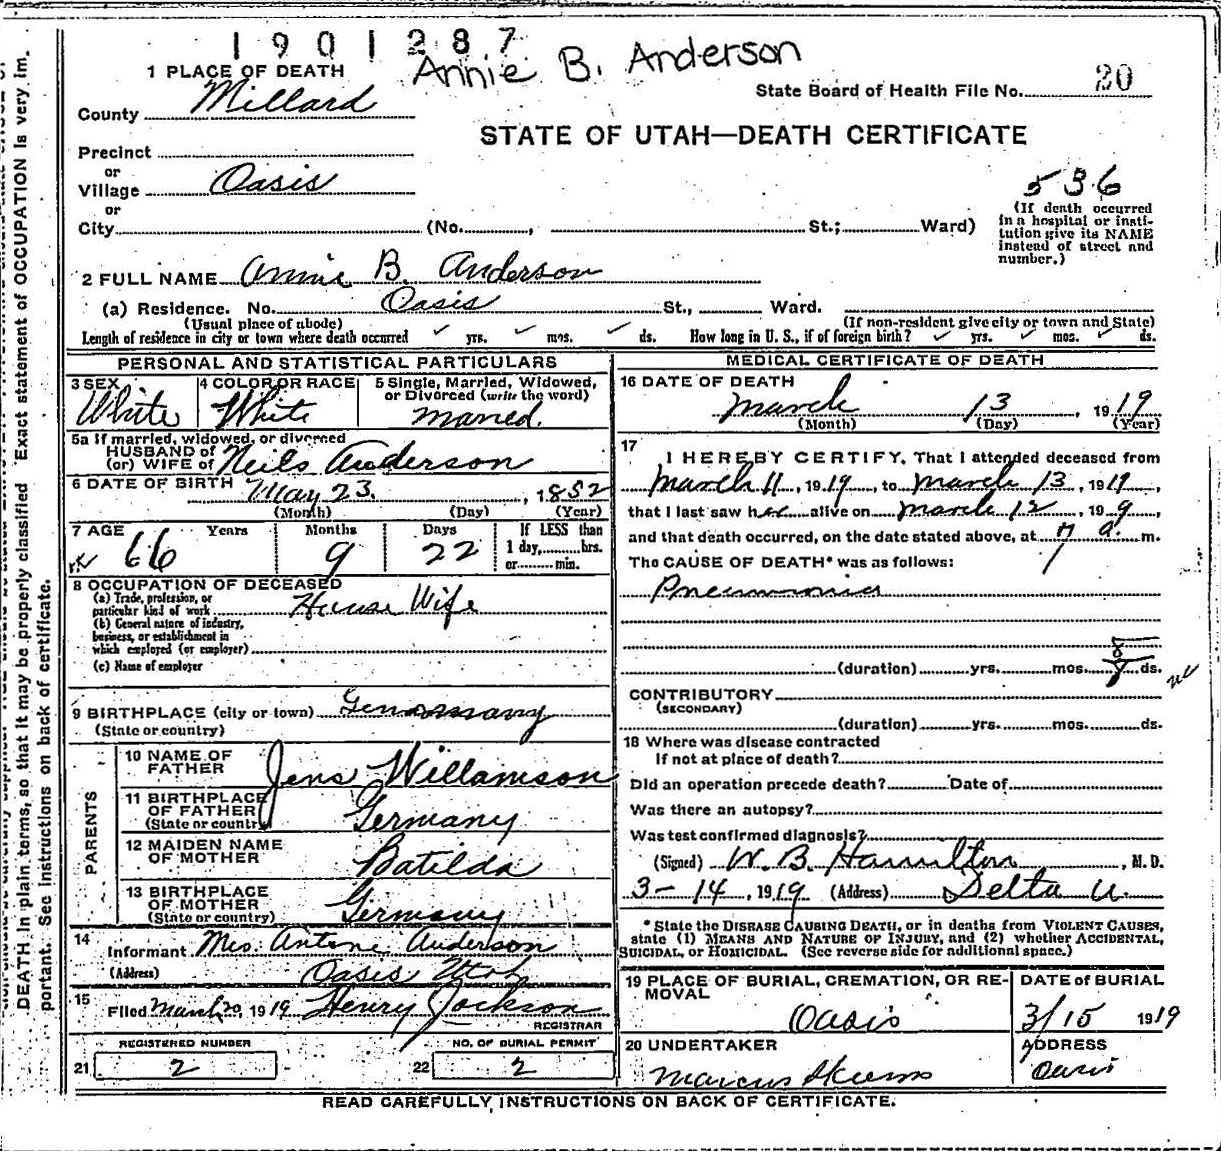 1901287
Annie B. Anderson
1 PLACE OF DEATH
State Board of Health File No. 20
County Millard
STATE OF UTAH—DEATH CERTIFICATE
Precinct
or
Village Oasis
or
City (No. , St.; Ward)
536
(If death occurred
in a hospital or insti-
tution give its NAME
instead of street and
number.)
2 FULL NAME Annie B. Anderson
(a) Residence. No. Oasis St., Ward.
(Usual place of abode) (If non-resident give city or town and State)
Length of residence in city or town where death occurred ✓ yrs. ✓ mos. ✓ ds. How long in U. S., if of foreign birth? ✓ yrs. ✓ mos. ✓ ds.
PERSONAL AND STATISTICAL PARTICULARS
3 SEX
White
4 COLOR OR RACE
White
5 Single, Married, Widowed,
or Divorced (write the word)
married.
5a If married, widowed, or divorced
HUSBAND of
(or) WIFE of Neils Anderson
6 DATE OF BIRTH May 23. , 1852
(Month) (Day) (Year)
7 AGE Years Months Days If LESS than
66 9 22 1 day, hrs.
or min.
8 OCCUPATION OF DECEASED
(a) Trade, profession, or
particular kind of work House Wife
(b) General nature of industry,
business, or establishment in
which employed (or employer)
(c) Name of employer
9 BIRTHPLACE (city or town) Germany
(State or country)
PARENTS
10 NAME OF
FATHER Jens Willamson
11 BIRTHPLACE
OF FATHER Germany
(State or country)
12 MAIDEN NAME
OF MOTHER Batilda
13 BIRTHPLACE
OF MOTHER Germany
(State or country)
14
Informant Mrs. Antone Anderson
(Address) Oasis Utah
15
Filed March 20, 1919 Henry Jackson
REGISTRAR
REGISTERED NUMBER NO. OF BURIAL PERMIT
21 2 22 2
MEDICAL CERTIFICATE OF DEATH
16 DATE OF DEATH
March 13 , 1919
(Month) (Day) (Year)
17
I HEREBY CERTIFY, That I attended deceased from
March 11, 1919, to March 13, 1919,
that I last saw her alive on March 12, 199,
and that death occurred, on the date stated above, at 7 a. m.
The CAUSE OF DEATH* was as follows:
Pneumonia
8
(duration) yrs. mos. 8 ds.
CONTRIBUTORY
(SECONDARY)
(duration) yrs. mos. ds.
18 Where was disease contracted
If not at place of death?
Did an operation precede death? Date of
Was there an autopsy?
Was test confirmed diagnosis?
(Signed) W. B. Hamilton , M. D.
3-14, 1919 (Address) Delta U.
*State the DISEASE CAUSING DEATH, or in deaths from VIOLENT CAUSES,
state (1) MEANS AND NATURE OF INJURY, and (2) whether ACCIDENTAL,
SUICIDAL, or HOMICIDAL. (See reverse side for additional space.)
19 PLACE OF BURIAL, CREMATION, OR RE-
MOVAL
Oasis
DATE of BURIAL
3/15 1919
20 UNDERTAKER
Marcus Skeems
ADDRESS
Oasis
READ CAREFULLY, INSTRUCTIONS ON BACK OF CERTIFICATE.
DEATH in plain terms, so that it may be properly classified. Exact statement of OCCUPATION is very im.
portant. See instructions on back of certificate.